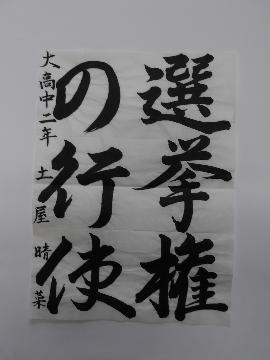 選挙権
の行使
大高中二年 土屋晴菜